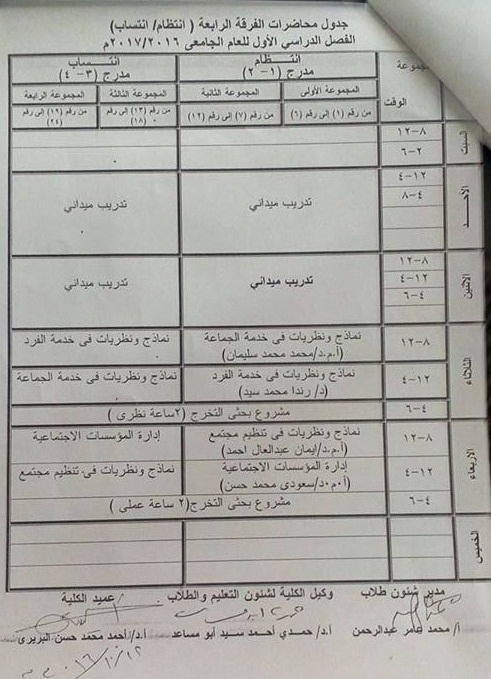 جدول محاضرات الفرقة الرابعة ( انتظام/ انتساب)
الفصل الدراسي الأول للعام الجامعى ٢٠١٧/٢٠١٦م
المجموعة
الوقت
انتـــظام
مدرج (١- ٢)
انتـــساب
مدرج (٣- ٤)
المجموعة الأولى
المجموعة الثانية
المجموعة الثالثة
المجموعة الرابعة
من رقم (١) إلى رقم (٦)
من رقم (٧) إلى رقم (١٢)
من رقم (١٣) إلى رقم (١٨)
من رقم (١٩) إلى رقم (٢٤)
السبت
٨-١٢
٢-٦
الأحــد
١٢-٤
٤-٨
تدريب ميداني
تدريب ميداني
الاثنين
٨-١٢
١٢-٤
٤-٦
تدريب ميداني
تدريب ميداني
الثلاثاء
٨-١٢
نماذج ونظريات فى خدمة الجماعة
(أ.م.د/محمد محمد سليمان)
نماذج ونظريات فى خدمة الفرد
١٢-٤
نماذج ونظريات فى خدمة الفرد
(د/ رندا محمد سيد)
نماذج ونظريات فى خدمة الجماعة
٤-٦
مشروع بحثى التخرج (٢ساعة نظرى )
الأربعاء
٨-١٢
نماذج ونظريات فى تنظيم مجتمع
(أ.م.د/إيمان عبدالعال احمد)
إدارة المؤسسات الاجتماعية
١٢-٤
إدارة المؤسسات الاجتماعية
(أ.م.د/سعودى محمد حسن)
نماذج ونظريات فى تنظيم مجتمع
٤-٦
مشروع بحثى التخرج(٢ ساعة عملى )
الخميس
مدير شئون طلاب
وكيل الكلية لشئون التعليم والطلاب
عميد الكلية
أ/ محمد عامر عبدالرحمن
أ.د/ حمدي أحمد سيد أبو مساعد
أ.د/ أحمد محمد حسن البريرى